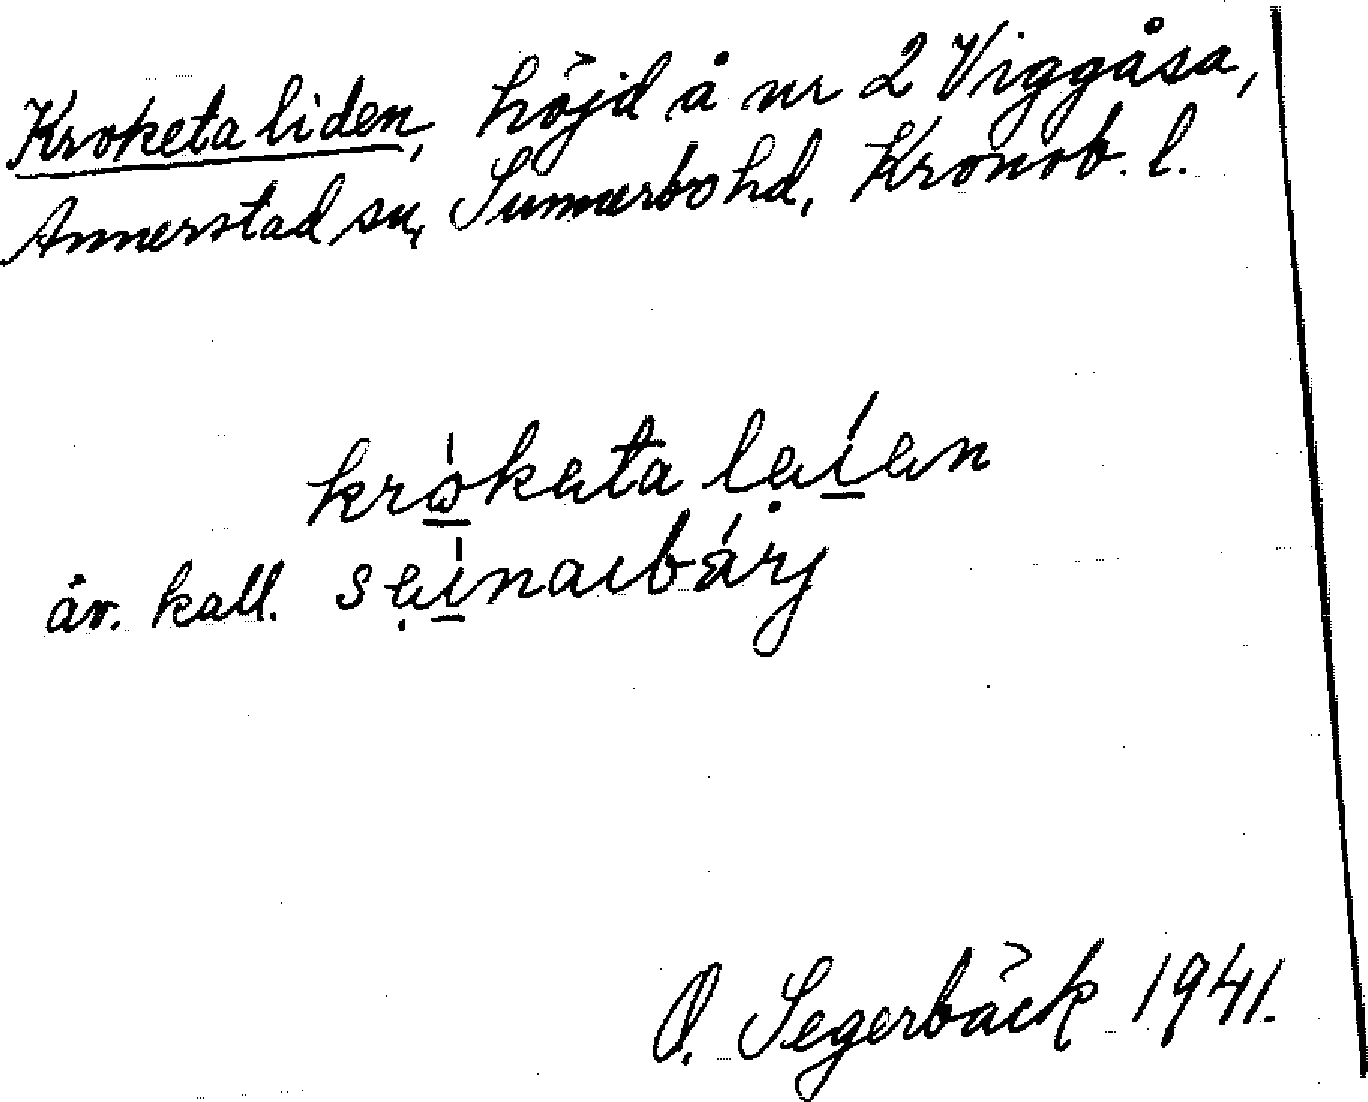 Kroketa liden, höjd å nr 2 Viggåsa,
Annerstad sn, Sunnerbo hd, Kronob. l.
krókata laían
äv. kall. saínaibárj
O. Segerbäck 1941.